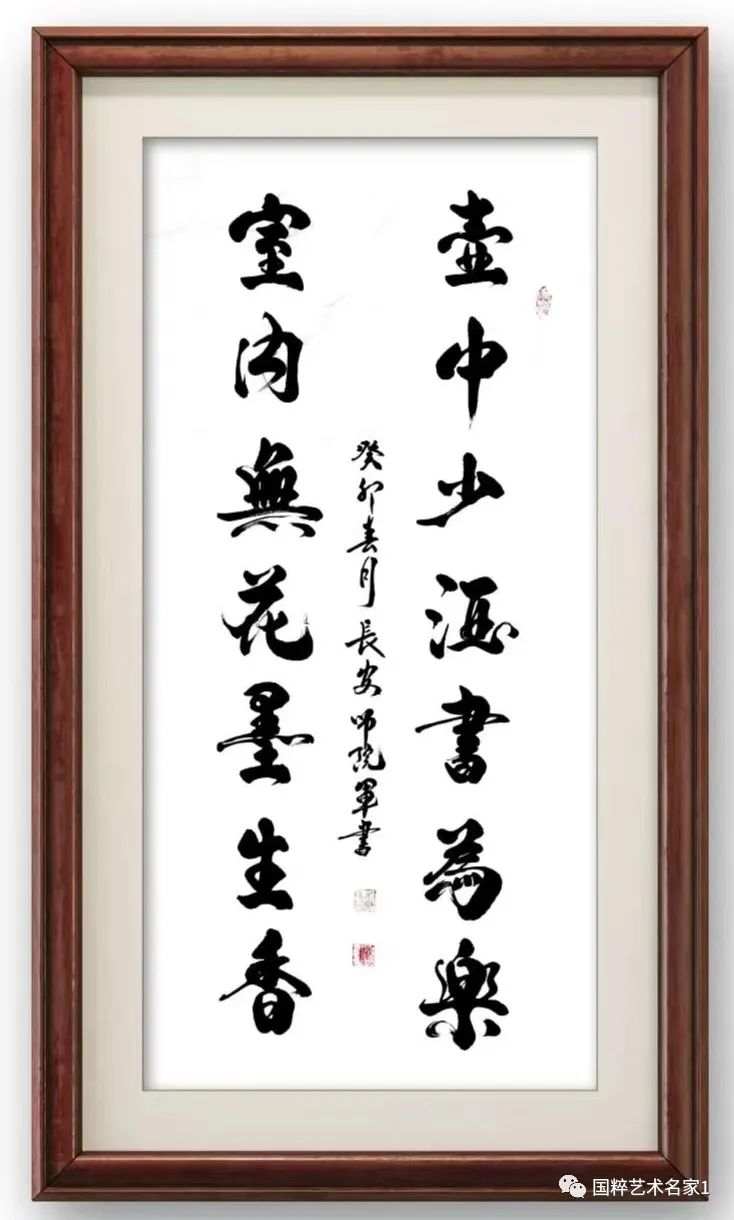 壺中少酒書為樂
室内無花墨生香
癸卯春月長安師院軍書
国粹艺术名家1